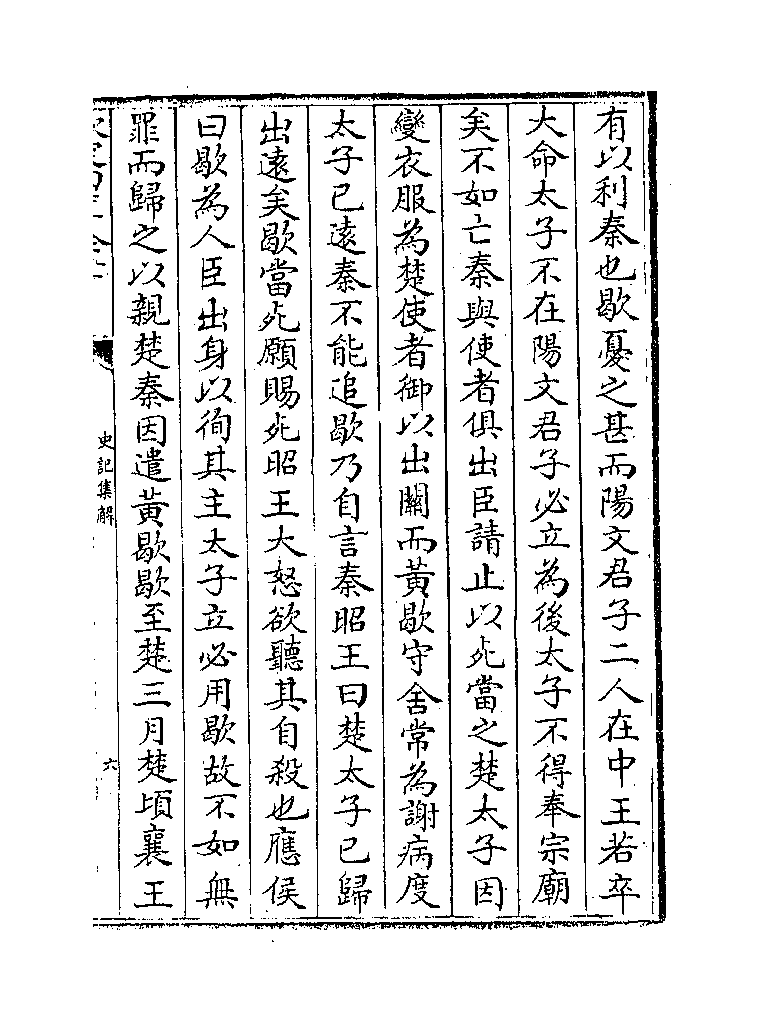 有以利秦也歇憂之甚而陽文君子二人在中王若卒
大命太子不在陽文君子必立為後太子不得奉宗廟
矣不如亡秦與使者俱出臣請止以死當之楚太子因
變衣服為楚使者御以出關而黃歇守舍常為謝病度
太子已遠秦不能追歇乃自言秦昭王曰楚太子已歸
出遠矣歇當死願賜死昭王大怒欲聽其自殺也應侯
曰歇為人臣出身以徇其主太子立必用歇故不如無
罪而歸之以親楚秦因遣黃歇歇至楚三月楚頃襄王
史記集解
六